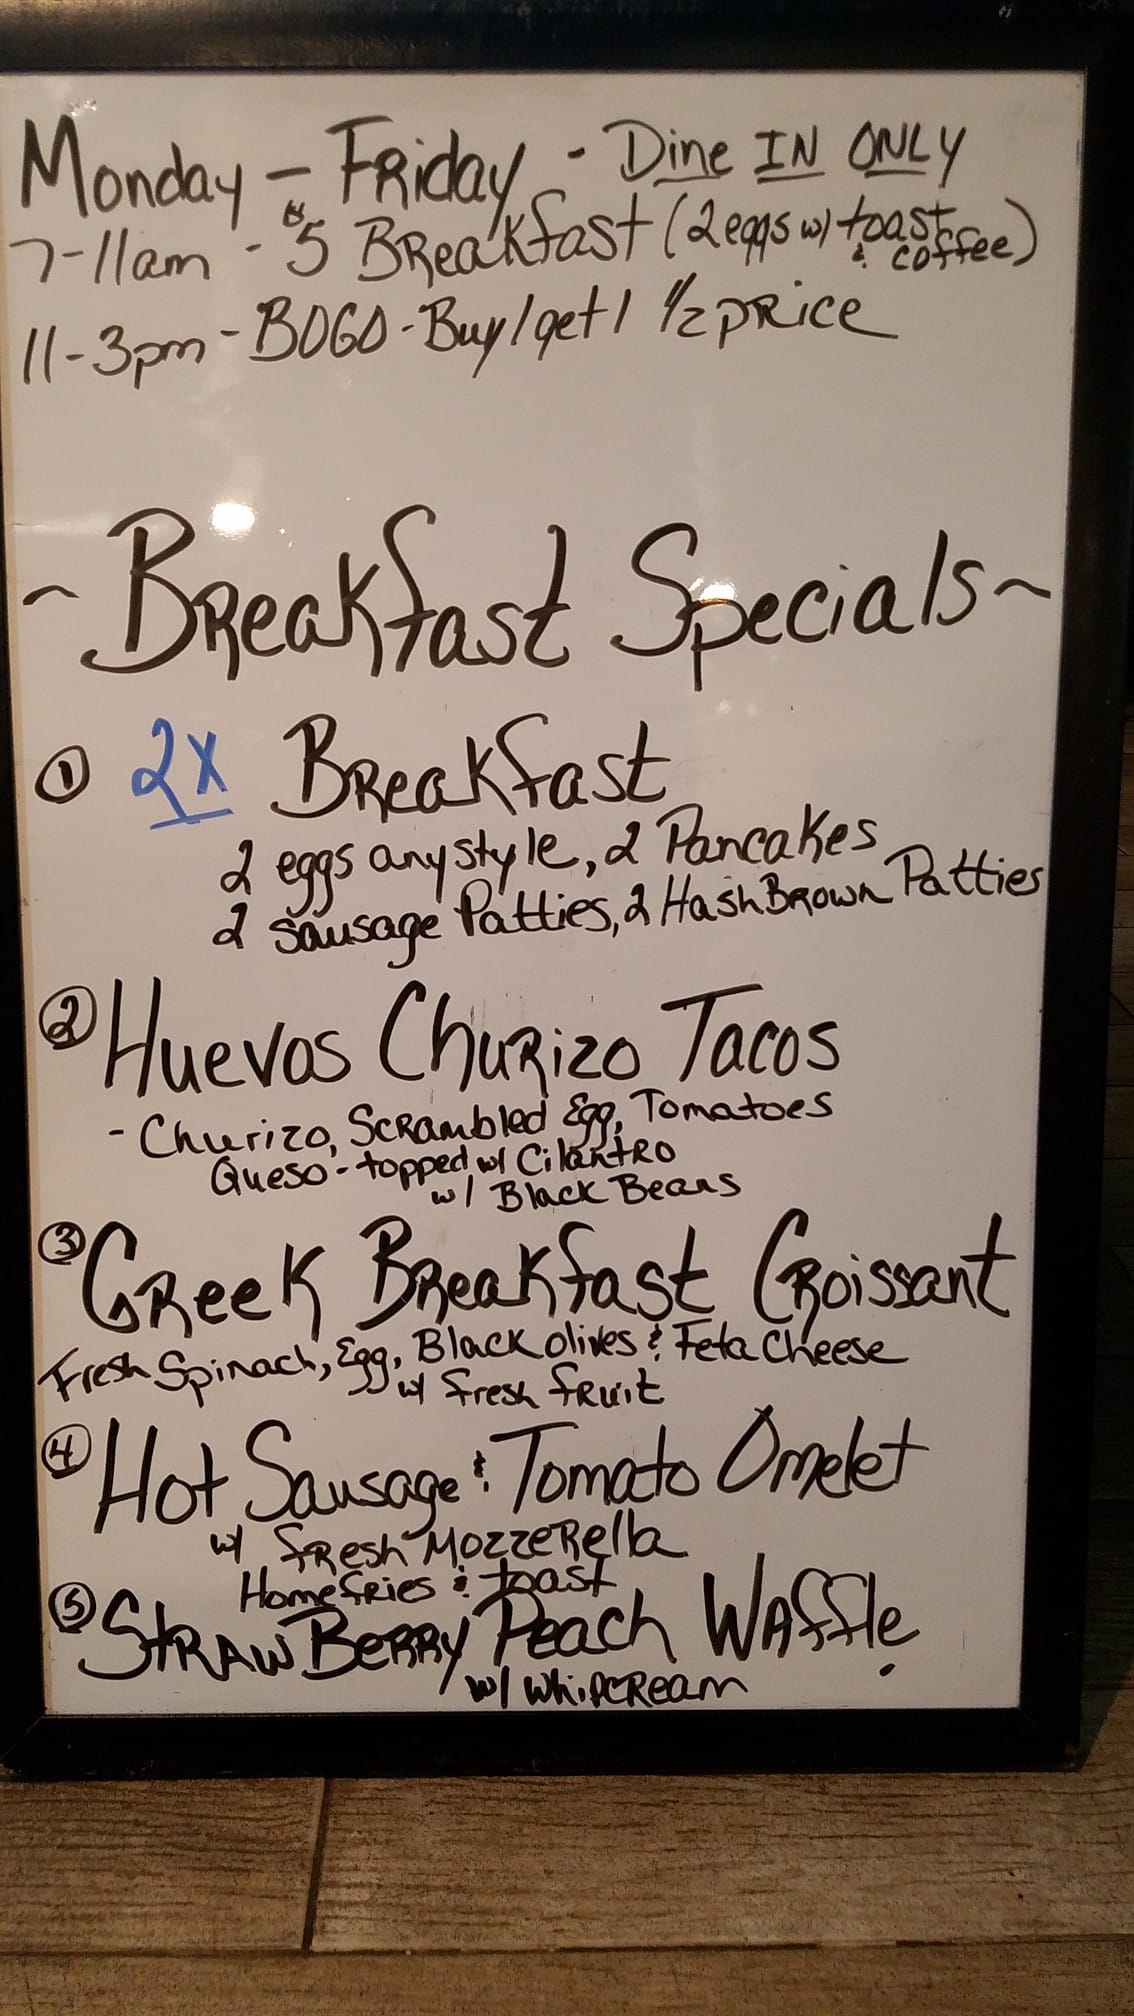 Monday - Friday - Dine IN ONLY
7-11am - $5 Breakfast (2 eggs w/ toast & coffee)
11-3pm - BOGO - Buy 1 get 1 1/2 price
~ Breakfast Specials ~
① 2x Breakfast
2 eggs any style, 2 Pancakes
2 sausage Patties, 2 Hash Brown Patties
② Huevos Churizo Tacos
- Churizo, Scrambled Egg, Tomatoes
Queso - topped w/ Cilantro
w/ Black Beans
③ Greek Breakfast Croissant
Fresh Spinach, Egg, Black olives & Feta Cheese
w/ fresh fruit
④ Hot Sausage & Tomato Omelet
w/ fresh Mozzerella
Homefries & toast
⑤ Strawberry Peach Waffle
w/ whipcream